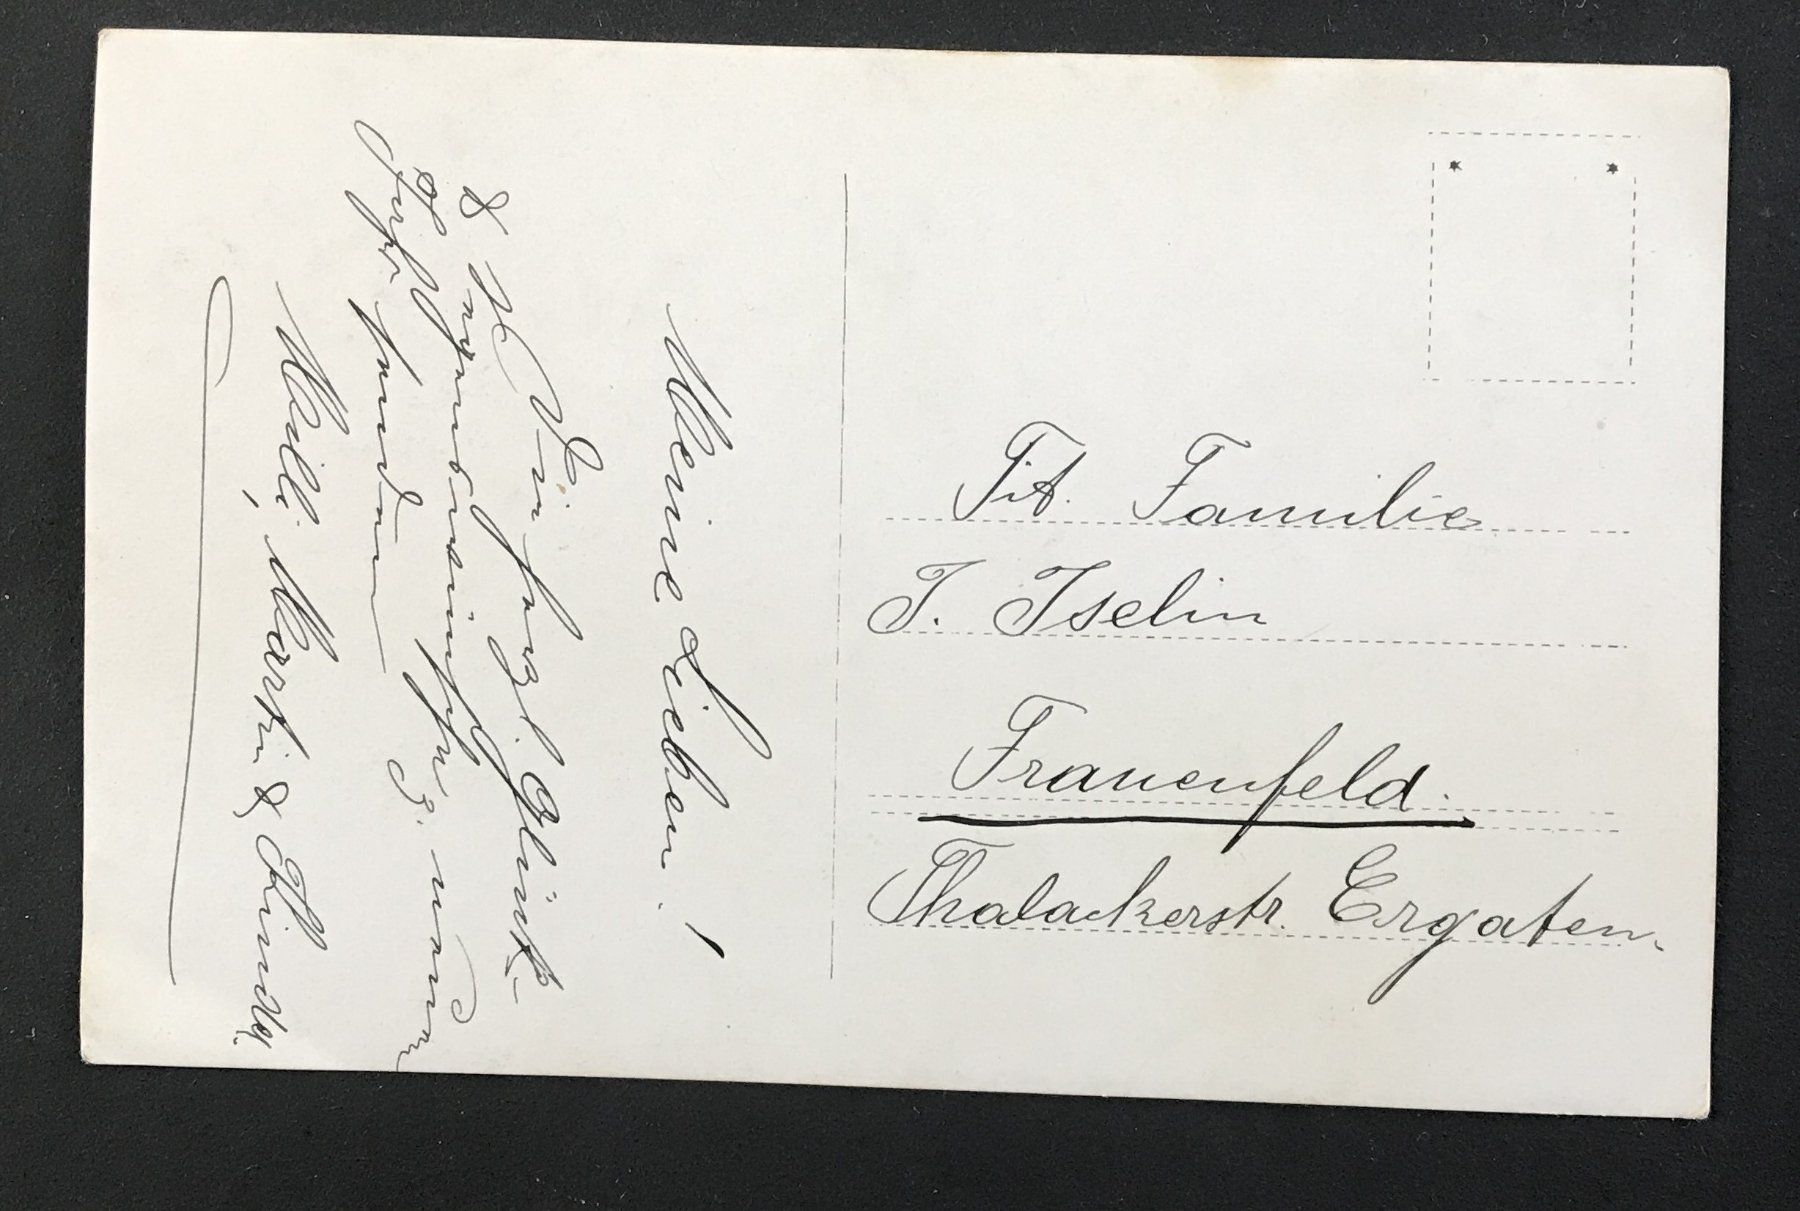 Meine Lieben!
Die herzl. Glück-
& Segenswünsche z. neuen
Jahr senden
Milli, Martin & Kinder.
Tit. Familie
J. Iselin
Frauenfeld.
Thalackerstr. Ergaten.